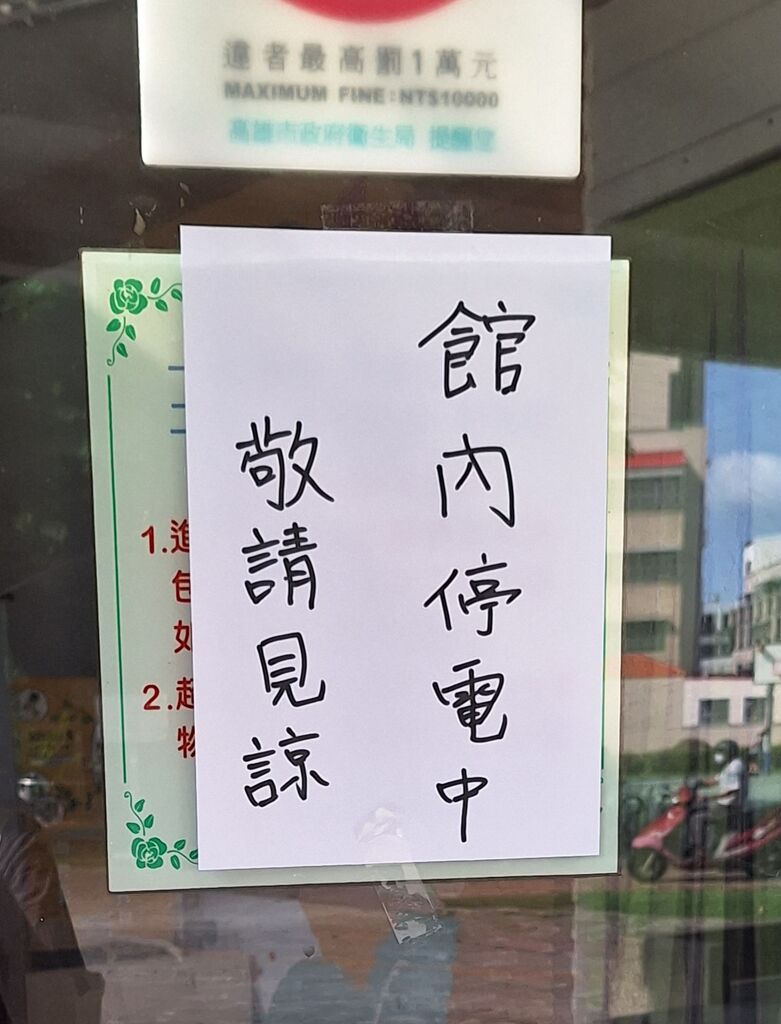 違者最高罰1萬元
MAXIMUM FINE:NT$10000
高雄市政府衛生局 提醒您
館內停電中
敬請見諒
1.進
包
如
2.超
物